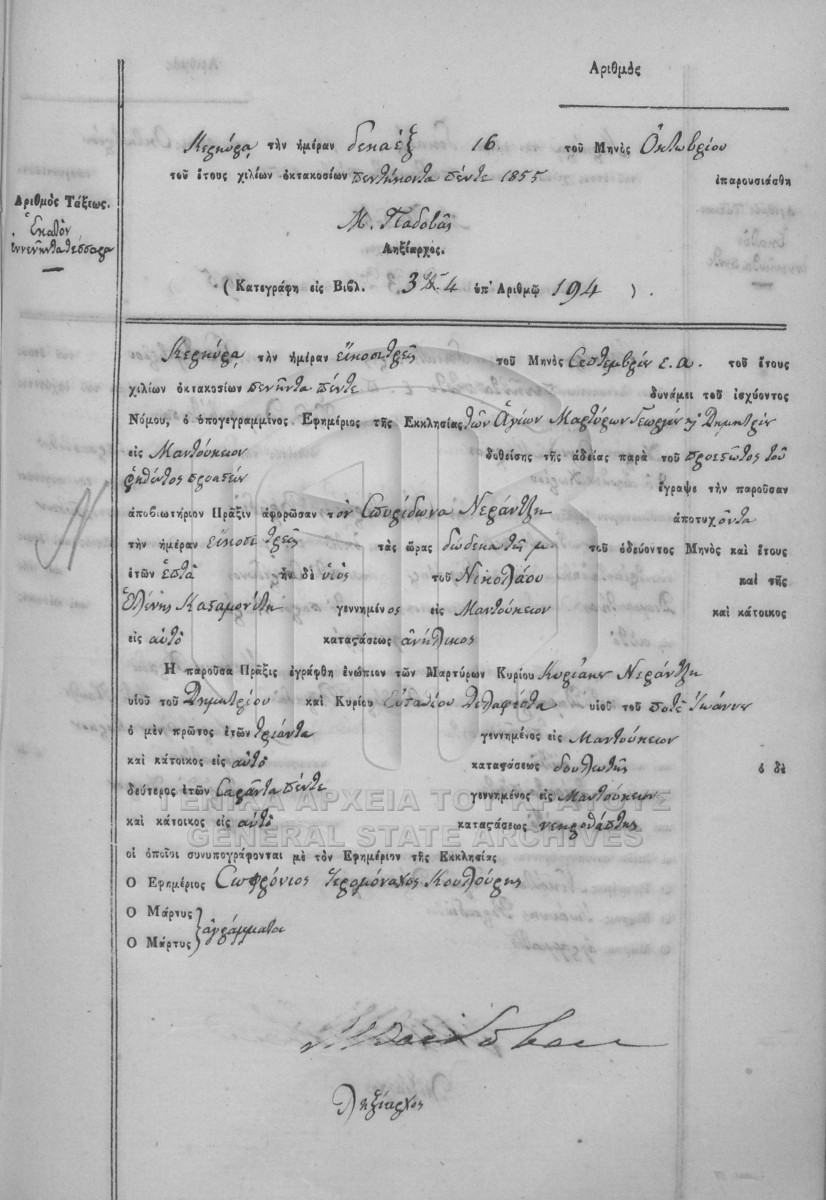 Ἀριθμὸς
Κερκύρα τὴν ἡμέραν δεκαέξ 16 τοῦ Μηνὸς Ὀκτωβρίου
τοῦ ἔτους χιλίων ὀκτακοσίων πεντήκοντα πέντε 1855 ἐπαρουσιάσθη
Ἀριθμὸς Τάξεως.
Ἑκατὸν
ἐννενῆντα τέσσαρα
Μ. Παδοβᾶς
Ληξίαρχος.
( Κατεγράφη εἰς Βιβλ. 3 4 ὑπ' Ἀριθμῷ 194 ) .
Κερκύρα τὴν ἡμέραν εἴκοσι τρεῖς τοῦ Μηνὸς Σεπτεμβρίου ε.α. τοῦ ἔτους
χιλίων ὀκτακοσίων πενῆντα πέντε δυνάμει τοῦ ἰσχύοντος
Νόμου, ὁ ὑπογεγραμμένος Ἐφημέριος τῆς Ἐκκλησίας τῶν Ἁγίων Μαρτύρων Γεωργίου καὶ Δημητρίου
εἰς Μαντούκειον δυθείσης τῆς ἀδείας παρὰ τοῦ προεστῶτος τοῦ
ῥηθέντος ἔγραψε τὴν παροῦσαν
ἀποβιωτήριον Πρᾶξιν ἀφορῶσαν τὸν Σπυρίδωνα Νεράντζη ἀποτυχόντα
τὴν ἡμέραν εἴκοσι τρεῖς τὰς ὥρας δώδεκα τῆς μ τοῦ ὁδεύοντος Μηνὸς καὶ ἔτους
ἐτῶν ἑπτὰ ἦν δὲ υἱὸς τοῦ Νικολάου καὶ τῆς
Ἑλένης Κασαμονίτη γεννημένος εἰς Μαντούκειον καὶ κάτοικος
εἰς αὐτὸ καταςάσεως ἀνήλικος
Ἡ παροῦσα Πρᾶξις ἐγράφθη ἐνώπιον τῶν Μαρτύρων Κυρίου Κυριάκου Νεράντζη
υἱοῦ τοῦ Δημητρίου καὶ Κυρίου Εὐσταθίου υἱοῦ τοῦ ποτὲ Ἰωάννου
ὁ μὲν πρῶτος ἐτῶν τριάντα γεννημένος εἰς Μαντούκειον
καὶ κάτοικος εἰς αὐτὸ καταςάσεως δουλωτὴς ὁ δὲ
δεύτερος ἐτῶν σαράντα πέντε γεννημένος εἰς Μαντούκειον
καὶ κάτοικος εἰς αὐτὸ καταςάσεως νεκροθάπτης
οἱ ὁποῖοι συνυπογράφονται μὲ τὸν Ἐφημέριον τῆς Ἐκκλησίας
Ὁ Ἐφημέριος Σωφρόνιος Ἱερομόναχος Κουλούρης
Ὁ Μάρτυς
ἀγράμματοι
Ὁ Μάρτυς
Ληξίαρχος
ΓΕΝΙΚΑ ΑΡΧΕΙΑ ΤΟΥ ΚΡΑΤΟΥΣ
GENERAL STATE ARCHIVES